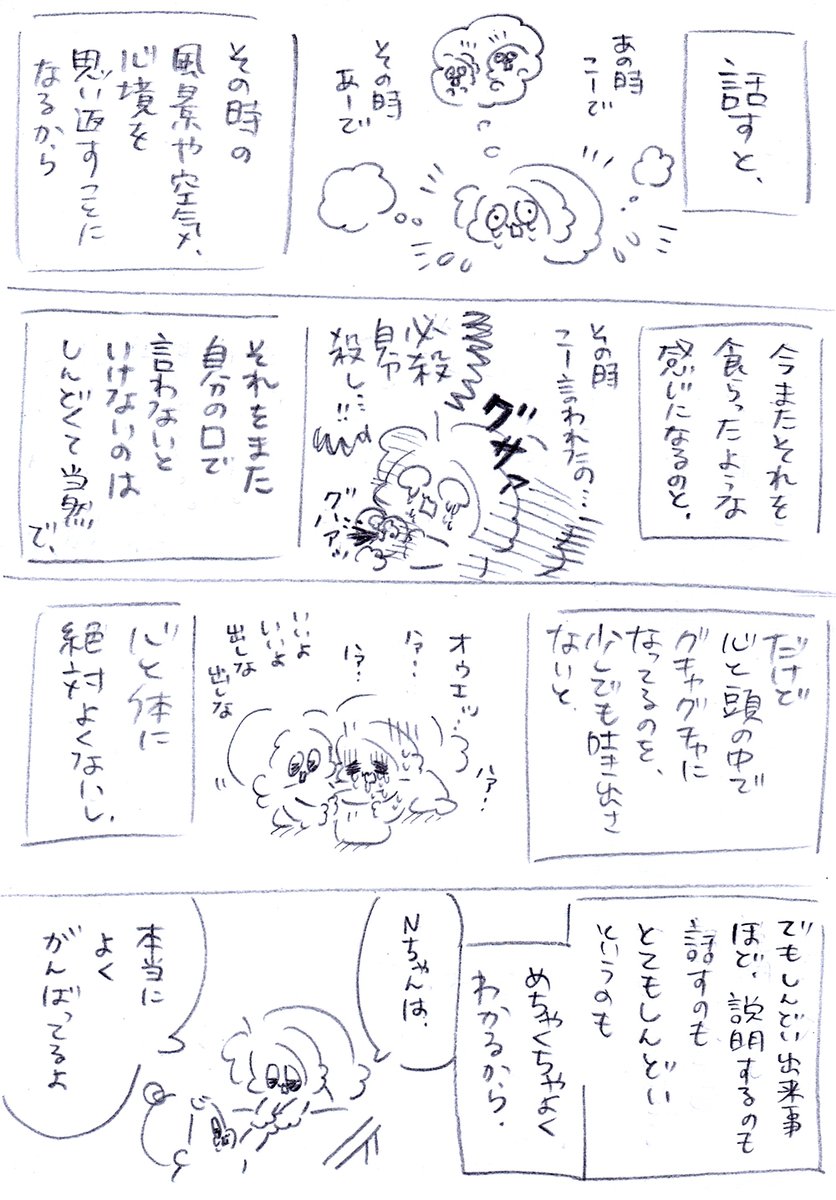 話すと、
あの時
こーで
その時
あーで
その時の
風景や空気、
心境を
思い返すことに
なるから
今またそれを
食らったような
感じになるのと、
その時
こー言われたの…
グサァ
必殺
自分
殺し…!!
グハァッ
それをまた
自分の口で
言わないと
いけないのは
しんどくて当然
で、
だけど
心と頭の中で
グチャグチャに
なってるのを、
少しでも吐き出さ
ないと
オウエッ…
ハァ!
ハァ!
ハァ!
いいよ
いいよ
出しな
出しな
心と体に
絶対よくないし、
でもしんどい出来事
ほど、説明するのも
話すのも
とてもしんどい
というのも
めちゃくちゃよく
わかるから、
Nちゃんは、
本当に
よく
がんばってるよ